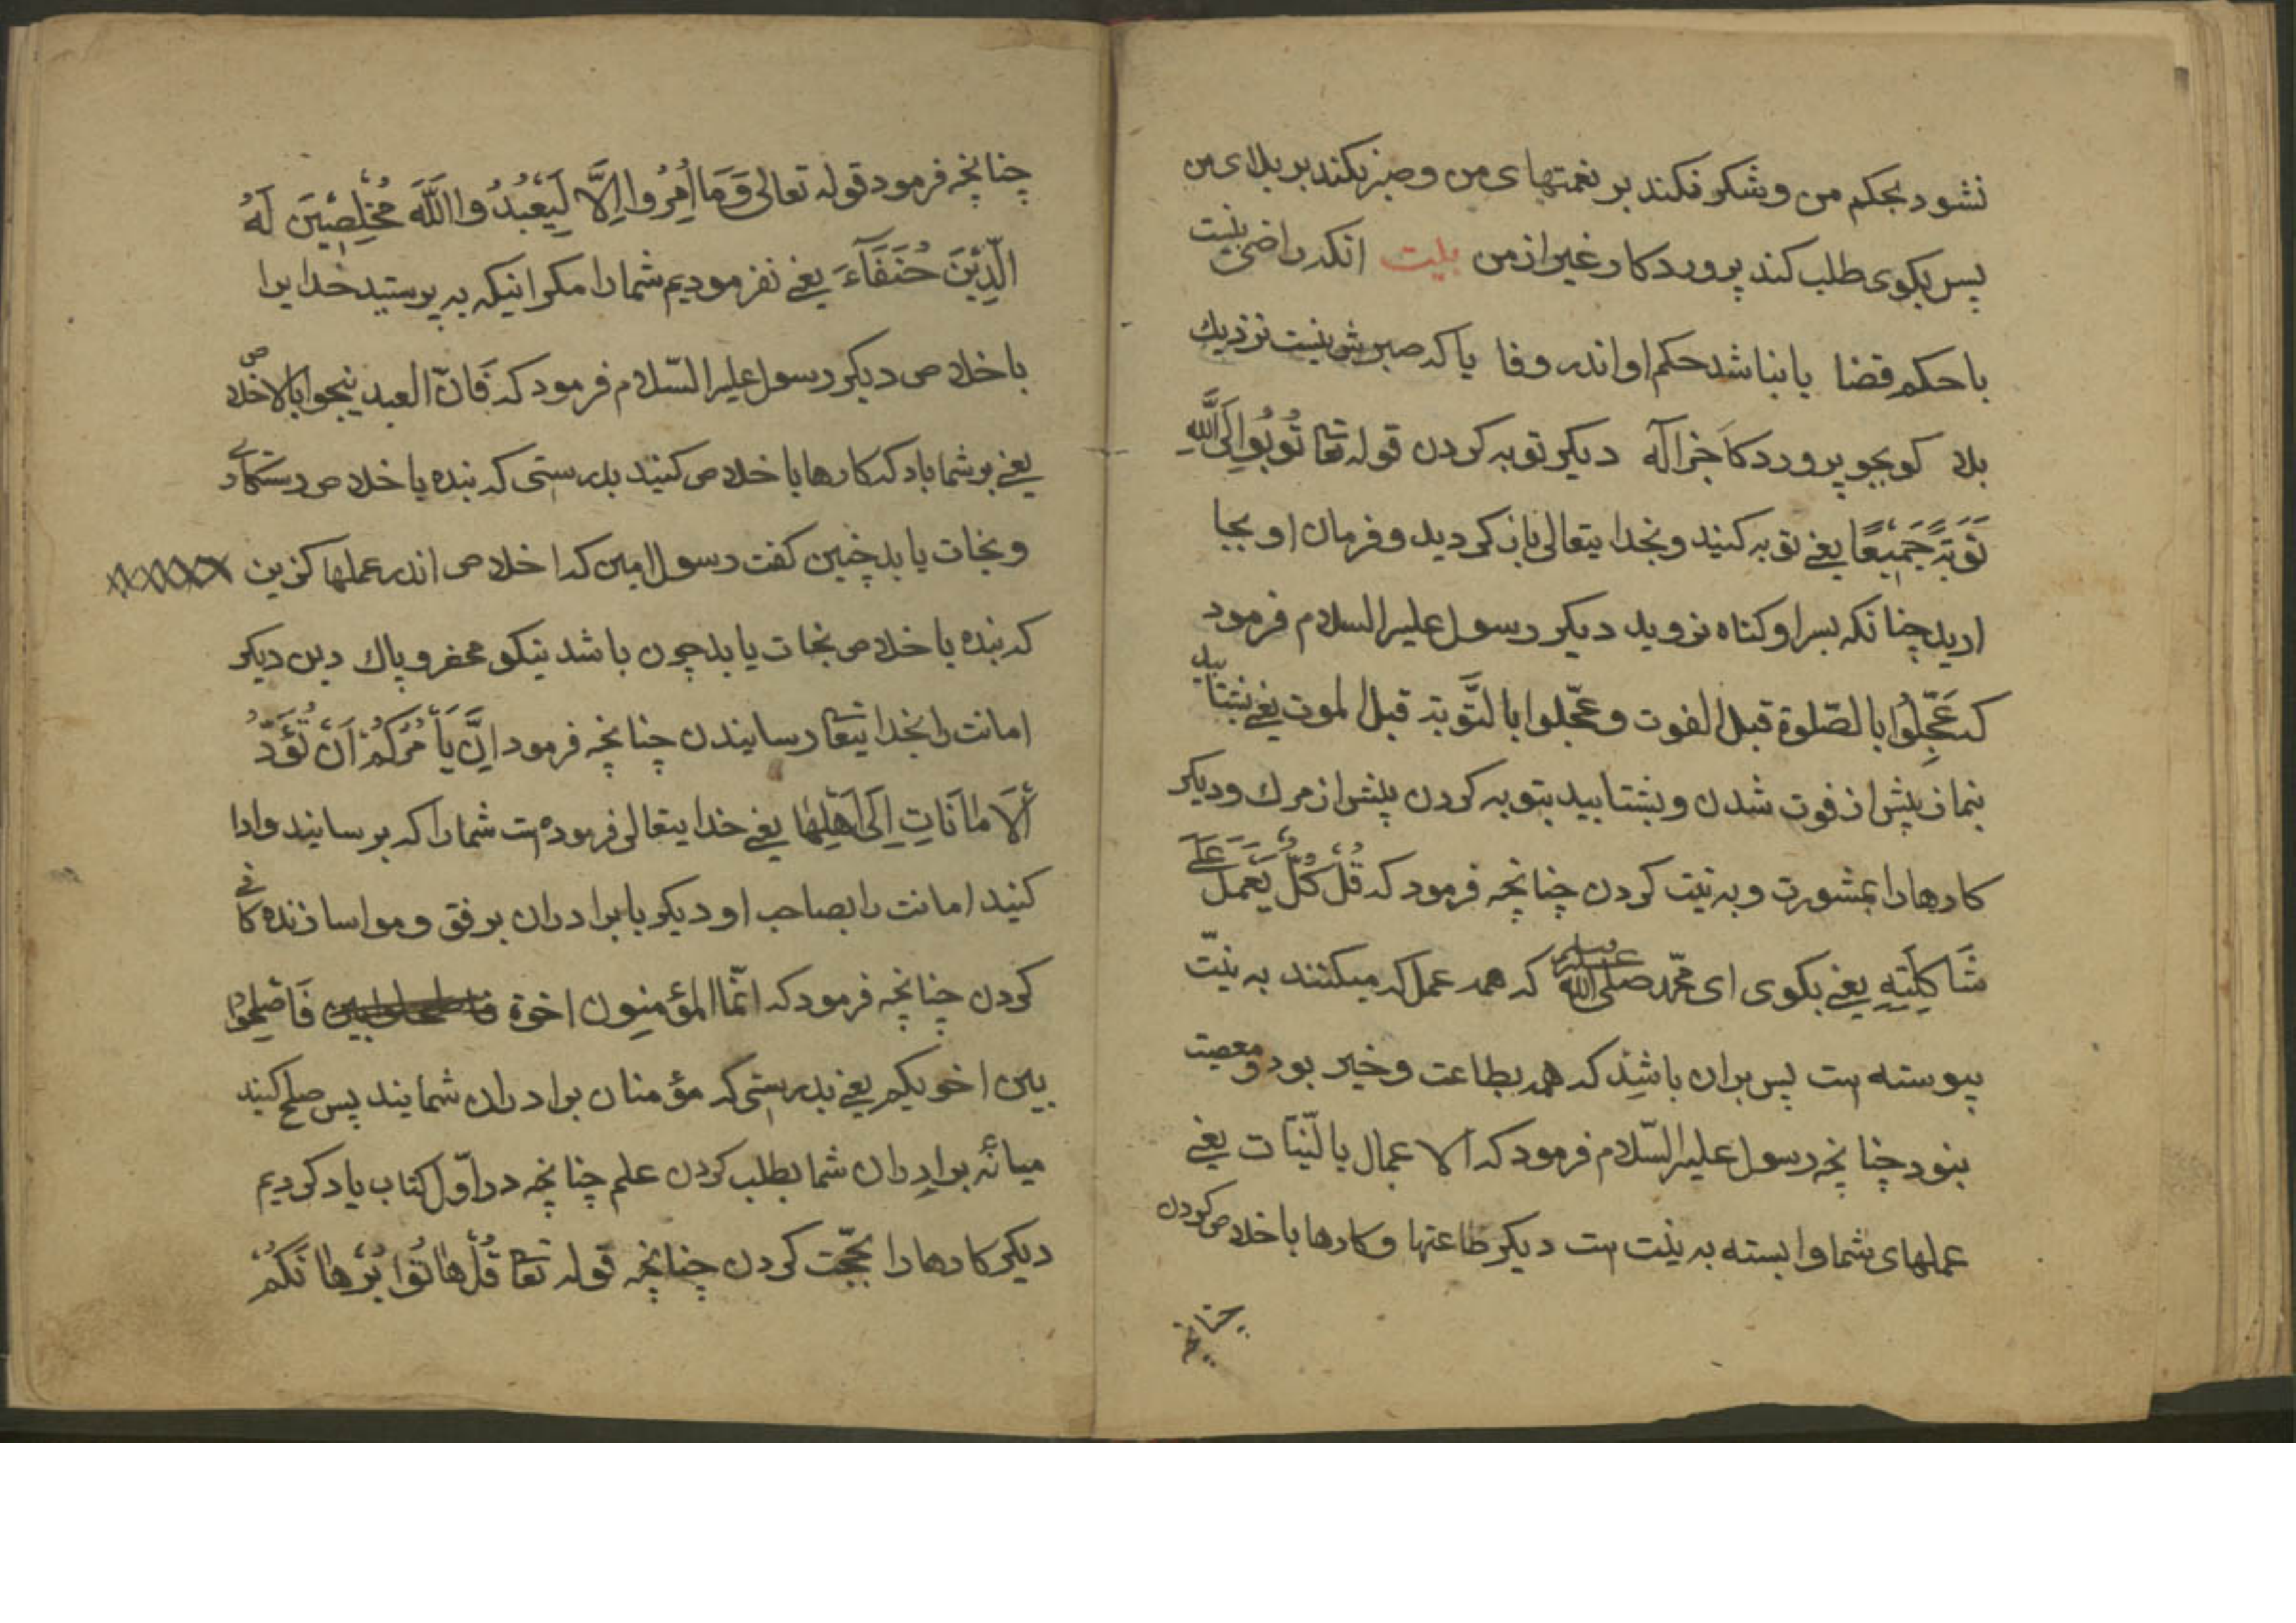 نشود بحکم من و شکر نکند بر نعمتهای من و صبر نکند بر بلای من
پس بکوی طلب کند پروردکار غیر از من بیت انکه راضی نیست
با حکم قضا یا بنا شد حکم او اندر وفا یا که صبرش نیست نزدیك
بلا کو بجو پروردکا جز اله دیکر توبه کردن قوله تعا تُوبُوا اِلَی اللّٰهِ
تَوبَةً جَمِیْعًا یعنے توبه کنید و بخدایتعالی باز کردید و فرمان او بجا
ارید چنانکه بسر او کناه نروید دیکر رسول علیه السلام فرمود
که عَجِّلُوا بالصّلوة قبل الفوت و عجّلوا بالتَّوبة قبل الموت یعنے بشتابید
بنماز پیش از فوت شدن و بشتابید بتوبه کردن پیش از مرك و دیکر
کارها را بمشورت و به نیت کردن چنانچه فرمود که قُلْ کُلٌّ یَعْمَلُ عَلَے
شَاکِلَتِهِ یعنے بکوی ای محمّد صلی الله علیه که همه عمل که میکنند به نیّت
پیوسته است پس بران باشد که همه بطاعت و خیر بود و معصیت
بنود چنانچه رسول علیه السّلام فرمود که الاعمال بالنّیّات یعنے
عملهای شما وابسته به نیت است دیکر طاعتها و کارها باخلاص کردن
چنانچه
چنانچه فرمود قوله تعالی وَمَا اُمِرُوا اِلَّا لِیَعْبُدُوا اللّٰهَ مُخْلِصِیْنَ لَهُ
الدِّیْنَ حُنَفَآءَ یعنے نفرمودیم شما را مکر اینکه به پرستید خدایرا
باخلاص دیکر رسول علیه السّلام فرمود که فَانّ العبد ینجوا بالاخلاص
یعنے بر شما باد که کارها باخلاص کنید بدرستی که بنده باخلاص رستکاری
و نجات یابد چنین کفت رسول امین که اخلاص اندر عملها کزین
که بنده باخلاص نجات یابد چون باشد نیکو محضر و پاك دین دیکر
امانت را بخدایتعا رسانیدن چنانچه فرمود اِنَّ یَأْمُرُکُمْ اَنْ تُؤَدُّ
اْلاَمَانَاتِ اِلَی اَهْلِهَا یعنے خدایتعالی فرموده است شما را که برسانید وادا
کنید امانت را بصاحب او دیکر با برادران برفق و مواسا زندکانی
کردن چنانچه فرمود که انّما المؤمنون اخوة فَاصْلِحُوا
بین اخویکم یعنے بدرستی که مؤمنان برادران شمایند پس صلح کنید
میانه برادران شما بطلب کردن علم چنانچه در اوّل کتاب یاد کردیم
دیکر کارها را بحجّت کردن چنانچه قوله تعا قُلْ هَاتُوا بُرْهَانَکُمْ